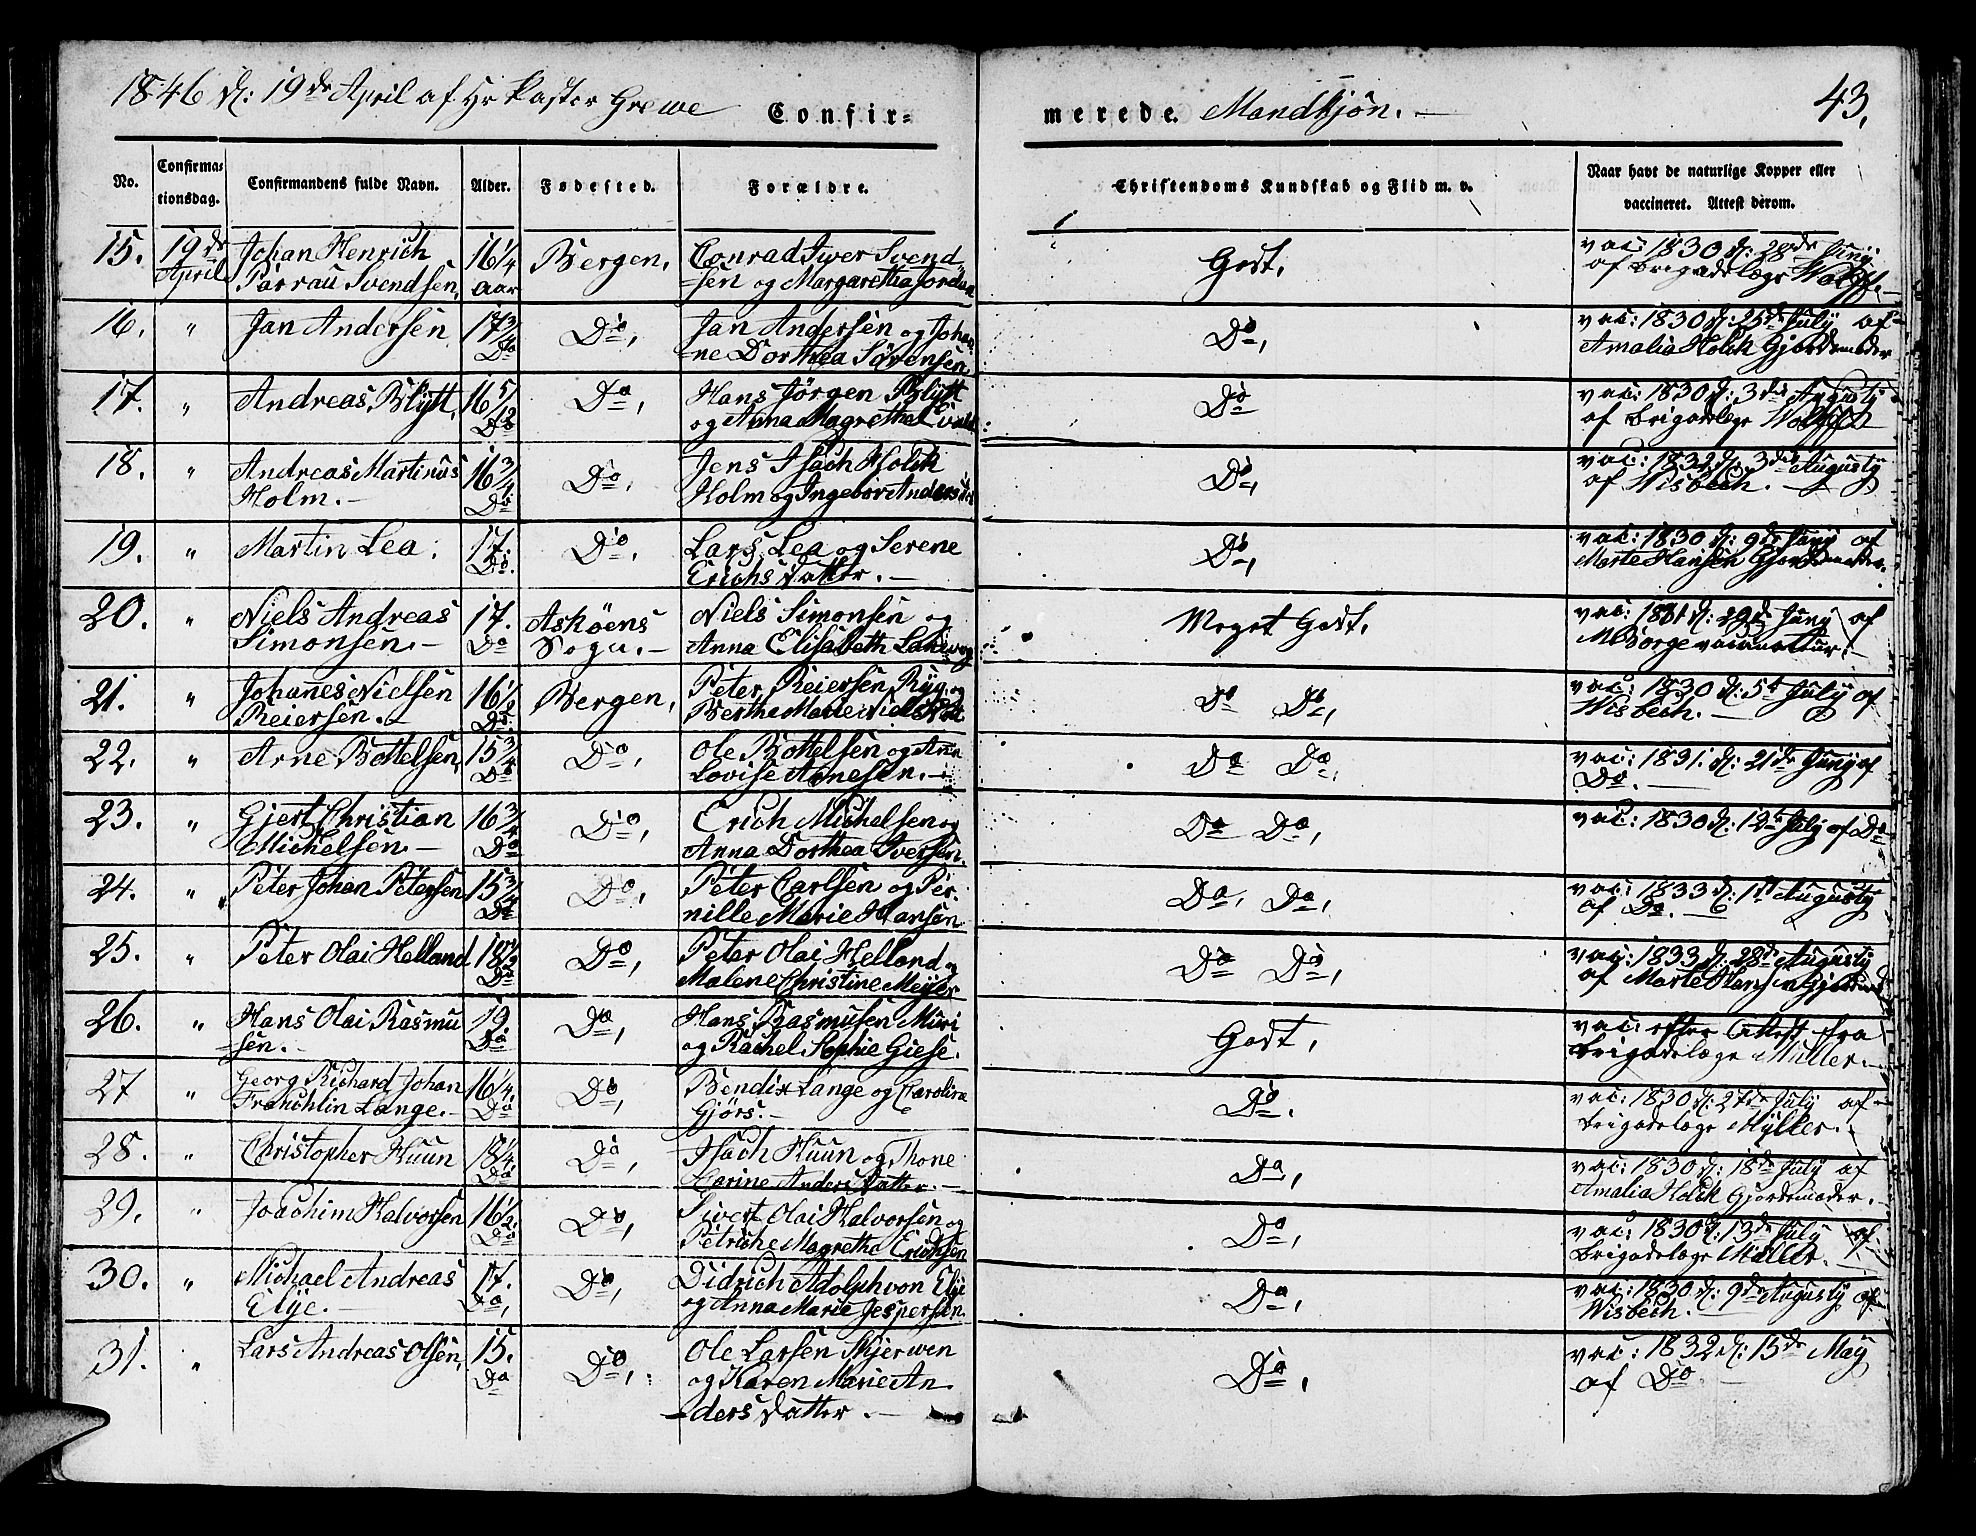 1846 d: 19de April af Hr Pastor Grewe Confir-
merede. Mandkjön. — 43,
No. Confirma-tionsdag. Confirmandens fulde Navn. Alder. Fødested. Forældre. Christendoms Kundskab og Flid m. v. Naar havt de naturlige Kopper eller vaccineret. Attest derom.
15. 19de Johan Henrich 16 1/4 Bergen, Conrad Iwer Svend Godt, vac: 1830 d: 28de Juny
April Parrau Svendsen, aar -sen og Margaretha Jordan af brigadelæge Wolff. —
16. " Jan Andersen 17 3/4 Do, Jan Andersen og Joha- Do, vac: 1830 d: 25de July af
Do -ne Dorthea Sörensen Amalia Holck Gjordemoder
17. " Andreas Blytt, 16 5/12 Do, Hans Jörgen Blytt Do vac: 1830 d: 3de Augusty
Do og Anna Magrethe af brigadelæge Wolff
18. " Andreas Martinus 16 3/4 Do, Jens Isach Holck Do, vac: 1832 d: 3de Augusty
Holm. — Do Holm og Ingebor af Wisbech. —
19. " Martin Lea, 17. Do, Lars Lea og Serene Do, vac: 1830 d: 9de Juny af
Do. Erichs Datter. — Marte Hansen Gjordemoder.
20. " Niels Andreas 17. Asköens Niels Simonsen og Meget Godt, vac: 1831 d: 29de Juny af
Simonsen. — Do Sogn. — Anna Elisabeth M Borge
21. " Johanes Nielsen 16 1/2 Bergen, Peter Reiersen og Do Do, vac: 1830 d: 5t July af
Reiersen. — Do. Berthe Marie Wisbech. —
22. " Arne Bottelsen, 15 3/4 Do, Ole Bottelsen og Anne Do Do, vac: 1831. d: 21de Juny af
Do Lovise Arnesen. — Do. —
23. " Gjert Christian 16 3/4 Do, Erich Michelsen og Do Do, vac: 1830 d: 12t July af Do
Michelsen. — Do Anna Dorthea Iversen.
24. " Peter Johan Petersen 15 3/4 Do, Peter Carlsen og Per- Do, Do, vac: 1833 d: 1st Augusty
Do nille Marie Hansen af Do. —
25. " Peter Olai Helland 18 1/2 Do, Peter Olai Helland og Do Do, vac: 1833 d: 28de Augusty
Do Malene Christine Meyer af Marte Hansen
26. " Hans Olai Rasmu 19. Do, Hans Rasmusen Muri Godt, vac: efter Attest fra
-sen. — Do og Rachel Sophie Giese. brigadelæge Müller. —
27 " Georg Richard Johan 16 1/4. Do, Bendix Lange og Carolina Do. vac: 1830 d: 27de July af
Franchlin Lange. — Do Gjörs. — brigadelæge Myller. —
28. " Christopher Kuun 18 1/4 Do, Isach Kuun og Thone Do, vac: 1830 d: 18de July af
Do Carine Anders Datter. — Amalia Holck Gjordemoder. —
29. " Joachim Halvorsen 16 1/2. Do, Sivert Olai Halvorsen og Do, vac: 1830 d: 13de July af
Do Petriche Magretha Erichsen brigadelæge Müller. —
30. " Michael Andreas 17. Do, Didrich Adolph von Elije Do, vac: 1830 d: 9de Augusty af
Elije. — Do, og Anna Marie Jespersen. Wisbech. —
31. " Lars Andreas Olsen, 15. Do, Ole Larsen Skjerwen Do, vac: 1832 d: 15de May
Do og Karen Marie An af Do
-ders Datter. —